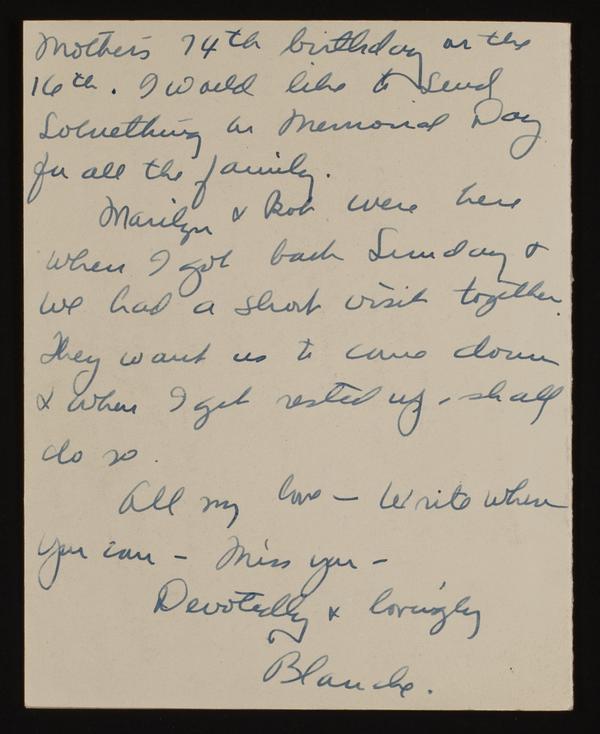 Mother's 74th birthday on the
16th. I would like to send
something on Memorial Day
for all the family.
Marilyn & Bob were here
when I got back Sunday &
we had a short visit together.
They want us to come down
& when I get rested up - shall
do so.
All my love — Write when
you can - Miss you -
Devotedly & lovingly
Blanche.